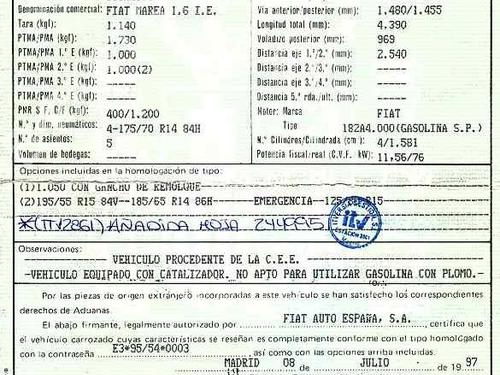 Denominación comercial: FIAT MAREA 1.6 I.E.
Tara (kgf): 1.140
PTMA/PMA (kgf): 1.730
PTMA/PMA 1.º E (kgf): 1.000
PTMA/PMA 2.º E (kgf): 1.000(2)
PTMA/PMA 3.º E (kgf): -----
PTMA/PMA 4.º E (kgf): -----
PNR S F. C/F (kgf): 400/1.200
N.º y dim. neumáticos: 4-175/70 R14 84H
N.º de asientos: 5
Volumen de bodegas: -----
Vía anterior/posterior (mm): 1.480/1.455
Longitud total (mm): 4.390
Voladizo posterior (mm): 969
Distancia eje 1.º/2.º (mm): 2.540
Distancia eje 2.º/3.º (mm): -----
Distancia eje 3.º/4.º (mm): -----
Distancia 5.ª rda./ult. (mm): -----
Motor: Marca FIAT
Tipo 182A4.000(GASOLINA S.P.)
N.º Cilindros/Cilindrada (cm³): 4/1.581
Potencia fiscal/real (C.V.F. kW): 11,56/76
Opciones incluidas en la homologación de tipo:
(1)1.050 CON GANCHO DE REMOLQUE
(2)195/55 R15 84V--185/65 R14 86H------EMERGENCIA R15
*(ITV2861) AÑADIDA HOJA
itv
Observaciones:
VEHICULO PROCEDENTE DE LA C.E.E.
-VEHICULO EQUIPADO CON CATALIZADOR. NO APTO PARA UTILIZAR GASOLINA CON PLOMO.-
Por las piezas de origen extranjero incorporadas a este vehículo se han satisfecho los correspondientes
derechos de Aduanas.
El abajo firmante, legalmente autorizado por FIAT AUTO ESPAÑA, S.A. , certifica que
el vehículo carrozado cuyas características se reseñan es completamente conforme con el tipo homologado
con la contraseña E3*95/54*0003 así como con las opciones arriba incluidas.
MADRID 08 JULIO de 1997